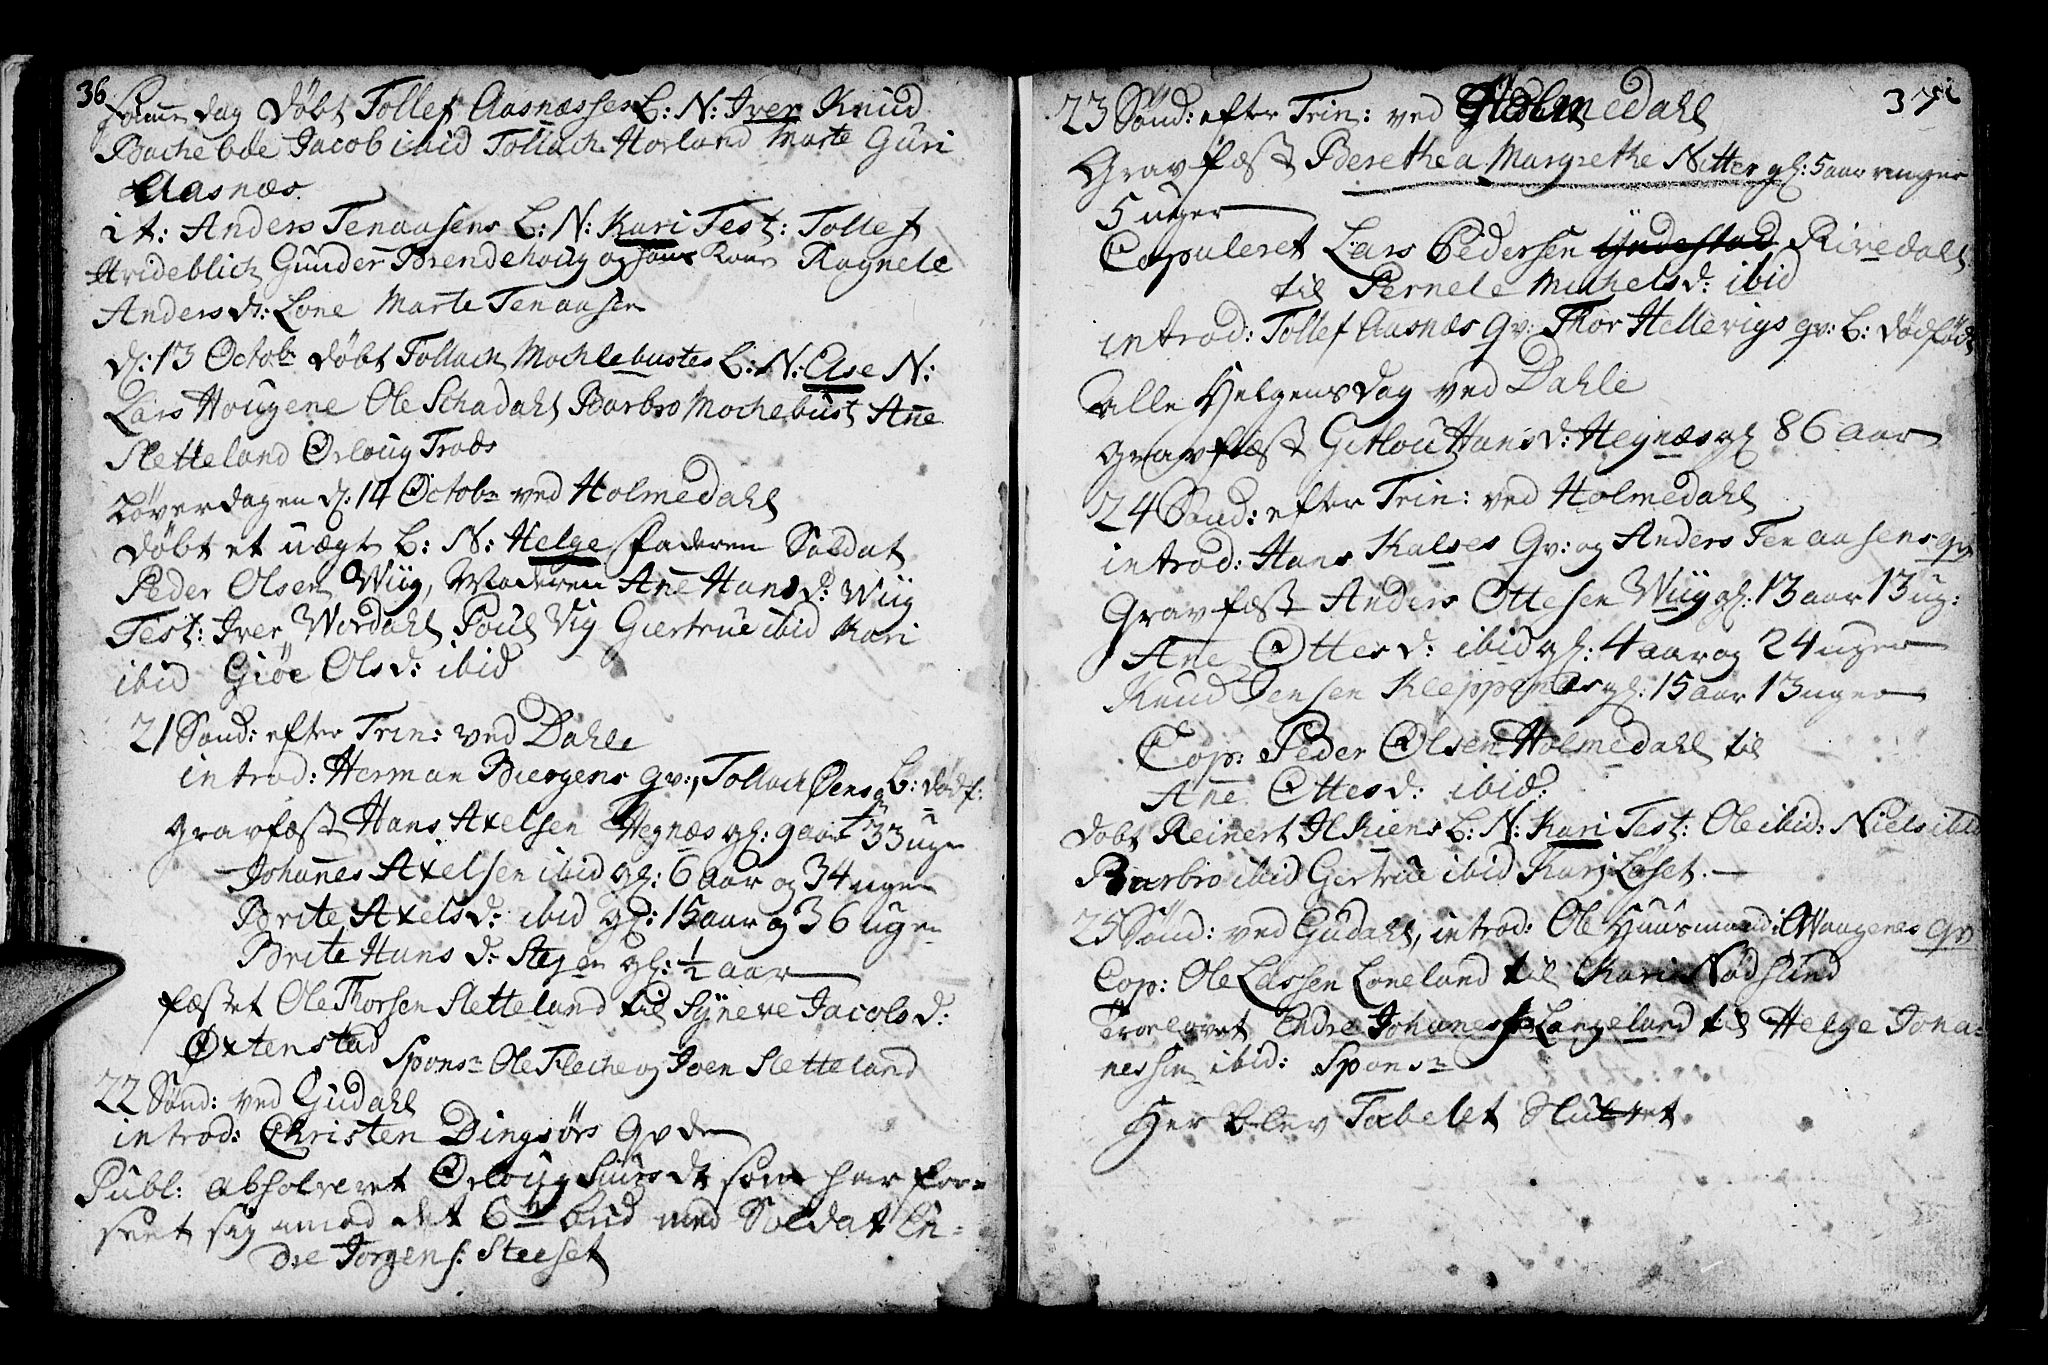 36
Samme dag døbt Tollef Aasnæsses B: N: Iver Knud
Bachebøe Jacob ibid Tollach Horland Marte Guri
Aasnæs.
it: Anders Tenaasens B: N: Kari Test: Tollef
Hrideblich Gunder Brendehoug og hans Kone Ragnele
Anders d: Lone Marte Tenaasen
d: 13 Octobr døbt Tollach Mochlebustes B: N: Ase N:
Lars Hougene Ole Schadahl Barbro Mochebust Ane
Sletteland Ørloug Trads
Løverdagen d: 14 Octobr ved Holmedahl
døbt et uægte B: N: Helge, faderen Soldat
Peder Olsen Wiig, Moderen Ane Hans d: Wiig
Test: Iver Wordahl Poul Vig Giertrue ibid Kari
ibid Giøe Ols d: ibid
21 Sønd: efter Trin: ved Dahle
introd: Herman Biergens qv:, Tollach Øens B: dødf:
gravfæst Hans Axelsen Hegnæs gl: 9 aar 33 uger
Johannes Axelsen ibid gl: 6 aar og 34 uger
Brite Axels d: ibid gl: 15 aar og 36 uger
Brite Hans d: Stegen gl: 1/2 aar
fæstet Ole Thorsen Sletteland til Synneve Jacobs d:
Øxtenstad Spons: Ole Fleche og Joen Sletteland
22 Sønd: ved Gudahl
introd: Christen Dingsørs qvde
Publ: absolveret Ørloug Siurs dt som har for=
seet sig imod det 6te bud med Soldat En=
dre Jorgens: Steeset
37
23 Sønd: efter Trin: ved Holmedahl
Gravfæst Berethea Margrethe Nitter gl: 5 aar ringer
5 uger
Copuleret Lars Pedersen Yndestad Riredahl
til Pernele Michels d: ibid
introd: Tollef Aasnæs Qv: Thor Hellerigs qv: B: dødfødt
Alle Helgens dag ved Dahle
gravfæst Gitlou Hans d: Hegnæs gl 86 aar
24 Sønd: efter Trin: ved Holmedahl
introd: Hans Kalses Qv: og Anders Tenaasens qv
Gravfæst Anders Ottesen Wiig gl: 13 aar 13 ug:
Ane Ottes d: ibid gl: 4 aar og 24 uger
Knud Jensen Kleppenæs gl: 15 aar 13 uger
Cop: Peder Olsen Holmedahl til
Ane Ottes d: ibid:
døbt Reinert Ilkiens B: N: Kari Test: Ole ibid: Niels ibid
Barbro ibid Gertrue ibid Kari Løset.
25 Sønd: ved Gudahl, introd: Ole Huusmand i Waagenes qv
Cop: Ole Lassen Loneland til Kari Nødsund
Troelovet Endre Johanes s: Langeland til Helge Joha=
nessen ibid: Spons:
Her blev Tabelet Sluttet